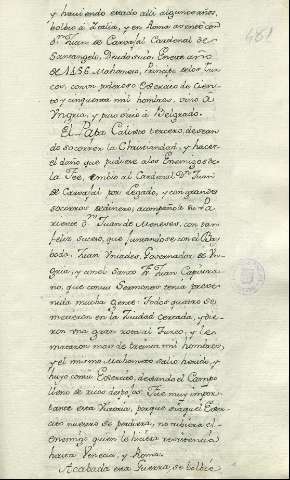 y haviendo estado allí algunos años,
bolbió à Italia, y en Roma asentó con
dⁿ Juan de Carvajal Cardenal de
Santangelo, Deudo suio. En este año
de 1456 Mahometo, Principe de los Tur-
cos, con un poderoso Exercito de cien-
to y cinquenta mil hombres, vino à
Vngria, y puso sitio à Belgrado.
El Papa Calixto tercero, desean-
do socorrer la Christiandad, y hacer
el daño que pudiese a los Enemigos de la
Fee, embio al Cardenal Dⁿ Juan
de Carvajal por Legado, y con grandes
socorros de dinero; acompañole
Pariente Dⁿ Juan de Meneses, con tan
feliz suceso, que juntandose con el Bay-
boda Juan Vniades Governador de Vn-
gria, y con el Santo Fr. Juan Capistra-
no, que con sus Sermones tenia preve-
nida mucha gente: Todos quatro se
metieron en la Ciudad cercada, y die-
ron una gran rota al Turco, y le
mataron mas de treinta mil hombres,
y el mismo Mahometo salio herido, y
huyo con su Exercito, dexando el Campo
lleno de ricos despojos. Fue muy impor-
tante esta Victoria, porque si aquel Exer-
cito nuestro se perdiera, no tubiera el
enemigo quien le hiciera resistencia
hasta Venecia, y Roma.
Acabada esta Guerra, se bolbió